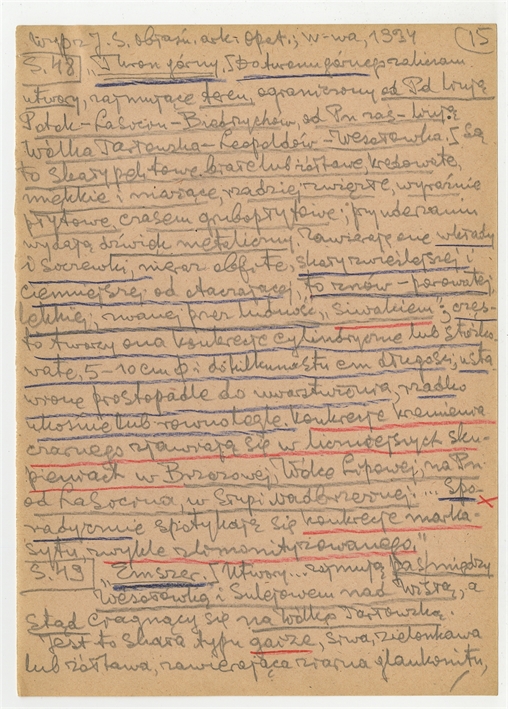 wypr J. S. objaśn. ark. Opat.; W-wa, 1934 15
S. 48 "Turon górny. Do turonu górnego zaliczam
utwory, zajmujące teren, ograniczony od Pd linją
Potok–Lasocin–Biedrzychów, od Pn zaś – linją:
Wólka Tarłowska–Leopoldów–Wesołówka. Są
to skały pelitowe, białe lub żółtawe, kredowate,
miękkie i marzące, rzadziej zwięzłe, wyraźnie
płytowe, czasem grubopłytowe; przy uderzeniu
wydają dźwięk metaliczny. Zawierają one wkłady
i soczewki, nieraz obfite, skały zwięźlejszej i
ciemniejszej od otaczającej, to znów – porowatej,
lekkiej, zwanej przez ludność "siwakiem"; częs-
to tworzy ona konkrecje cylindryczne lub stożko-
wate, 5–10 cm φ i do kilkunastu cm długości, usta-
wione prostopadle do uwarstwienia, rzadko
ukośnie lub równolegle. Konkrecje krzemienia
czarnego zjawiają się w liczniejszych sku-
pieniach w Brzozowej, Wólce Lipowej, na Pn.
od Lasocina, w Słupi Nadbrzeżnej. ... Spo-
radycznie spotykają się konkrecje marka-
sytu, zwykle zlimonityzowanego."
S. 49 "Emszer. Utwory... zajmują pas między
Wesołówką i Sulejowem nad Wisłą, a
stąd ciągnący się na Wólkę Tarłowską.
Jest to skała typu gaize, siwa, zielonkawa
lub żółtawa, zawierająca ziarna glaukonitu,